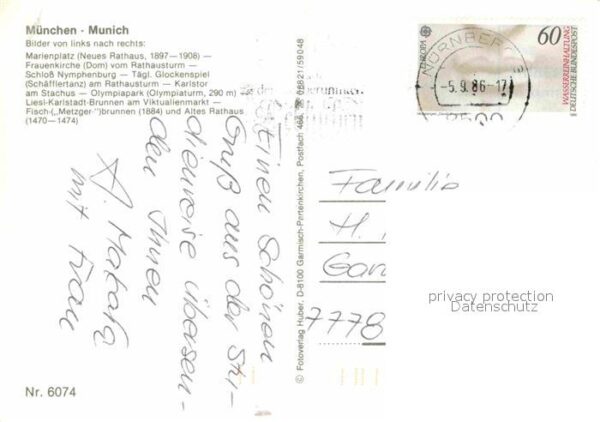 München - Munich
Bilder von links nach rechts:
Marienplatz (Neues Rathaus, 1897—1908) —
Frauenkirche (Dom) vom Rathausturm —
Schloß Nymphenburg — Tägl. Glockenspiel
(Schäfflertanz) am Rathausturm — Karlstor
am Stachus — Olympiapark (Olympiaturm, 290 m)
Liesl-Karlstadt-Brunnen am Viktualienmarkt —
Fisch-(„Metzger-")brunnen (1884) und Altes Rathaus
(1470—1474)
Einen Schönen
Gruß aus der
übersen-
den Ihnen
mit Frau
Nr. 6074
© Fotoverlag Huber, D-8100 Garmisch-Partenkirchen, Postfach 466, ☎ 08821/59048
EUROPA
60
WASSERREINHALTUNG
DEUTSCHE BUNDESPOST
NÜRNBERG
-5.9.86-17
8500
Familie
H.
Gar
7778
privacy protection
Datenschutz